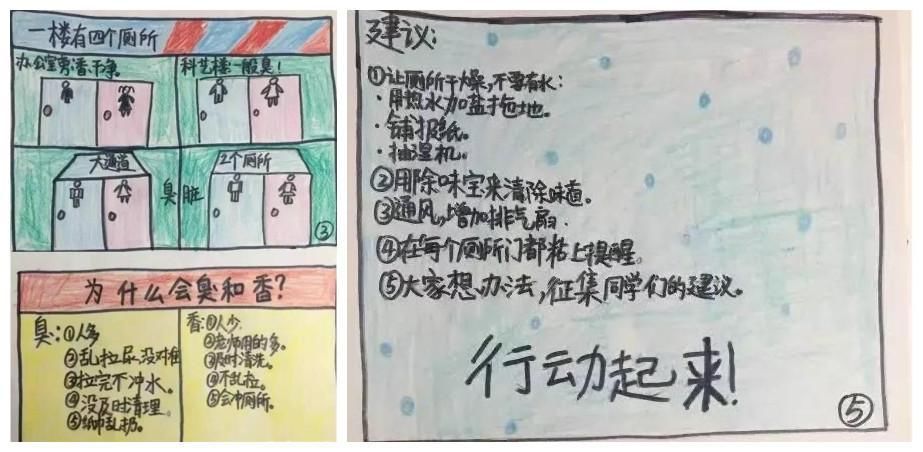 一楼有四个厕所
办公室旁香、干净。
科艺楼一般臭!
大通道
臭脏
2个厕所
③
为什么会臭和香?
臭:①人多
②乱拉尿、没对准
③拉完不冲水。
④没及时清理。
⑤纸巾乱扔。
香:①人少.
②老师用的多。
③及时清洗。
④不乱拉。
⑤会冲厕所。
建议:
①让厕所干燥,不要有水:
·用热水加盐拖地。
·铺报纸。
·抽湿机。
②用除味宝来清除味道。
③通风,增加排气扇.
④在每个厕所门都粘上提醒。
⑤大家想办法,征集同学们的建议。
行动起来!
⑤